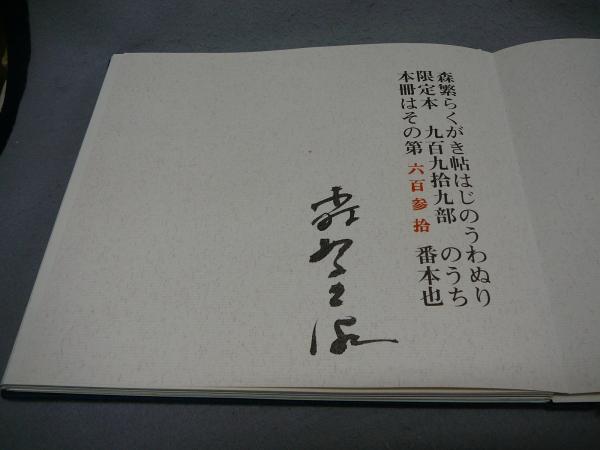 森繁らくがき帖はじのうわぬり
限定本 九百九拾九部 のうち
本冊はその第 六百参拾 番本也